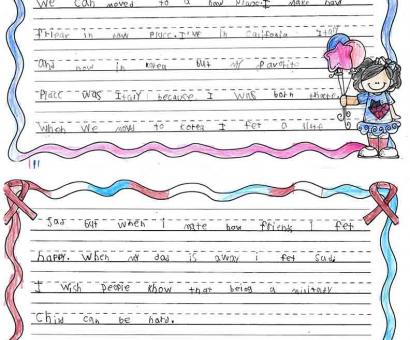 We can moved to a now place. I make now
frinear in now place. I've in Califonia Italy
and now in korea but my favorite
place was Italy because I was both there
when we now to corea I fet a little
Sad but when I mate now friens I fet
happy. When my dad is away i fet sad.
I wish people know that being a military
Chixd can be hard.